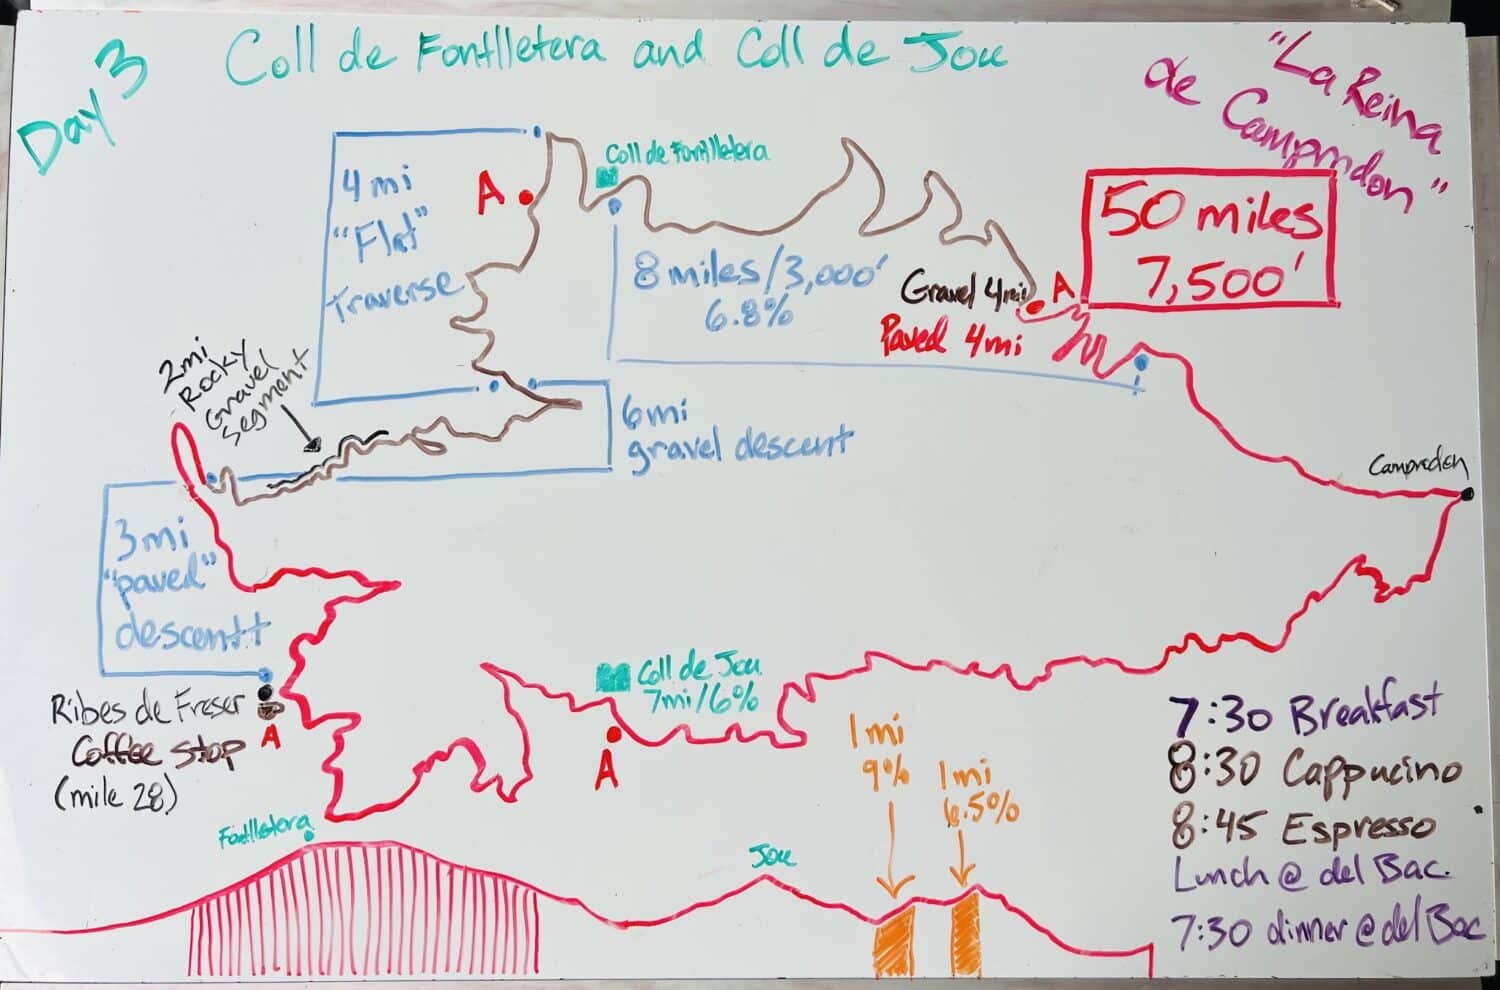 Day 3
Coll de Fontlletera and Coll de Jou
"La Reina
de Campmdon"
50 miles
7,500'
Coll de Fontlletera
A
4 mi
"Flat"
traverse
8 miles/3,000'
6.8%
Gravel 4mi
A
Paved 4mi
2mi
Rocky
Gravel
segment
6mi
gravel descent
Campredon
3mi
"paved"
descentt
Ribes de Freser
Coffee stop
(mile 28)
A
Coll de Jou
7mi/6%
A
1mi
9%
1mi
6.5%
Fontlletera
Jou
7:30 Breakfast
8:30 Cappucino
8:45 Espresso
Lunch @ del Bac.
7:30 dinner @ del Bac